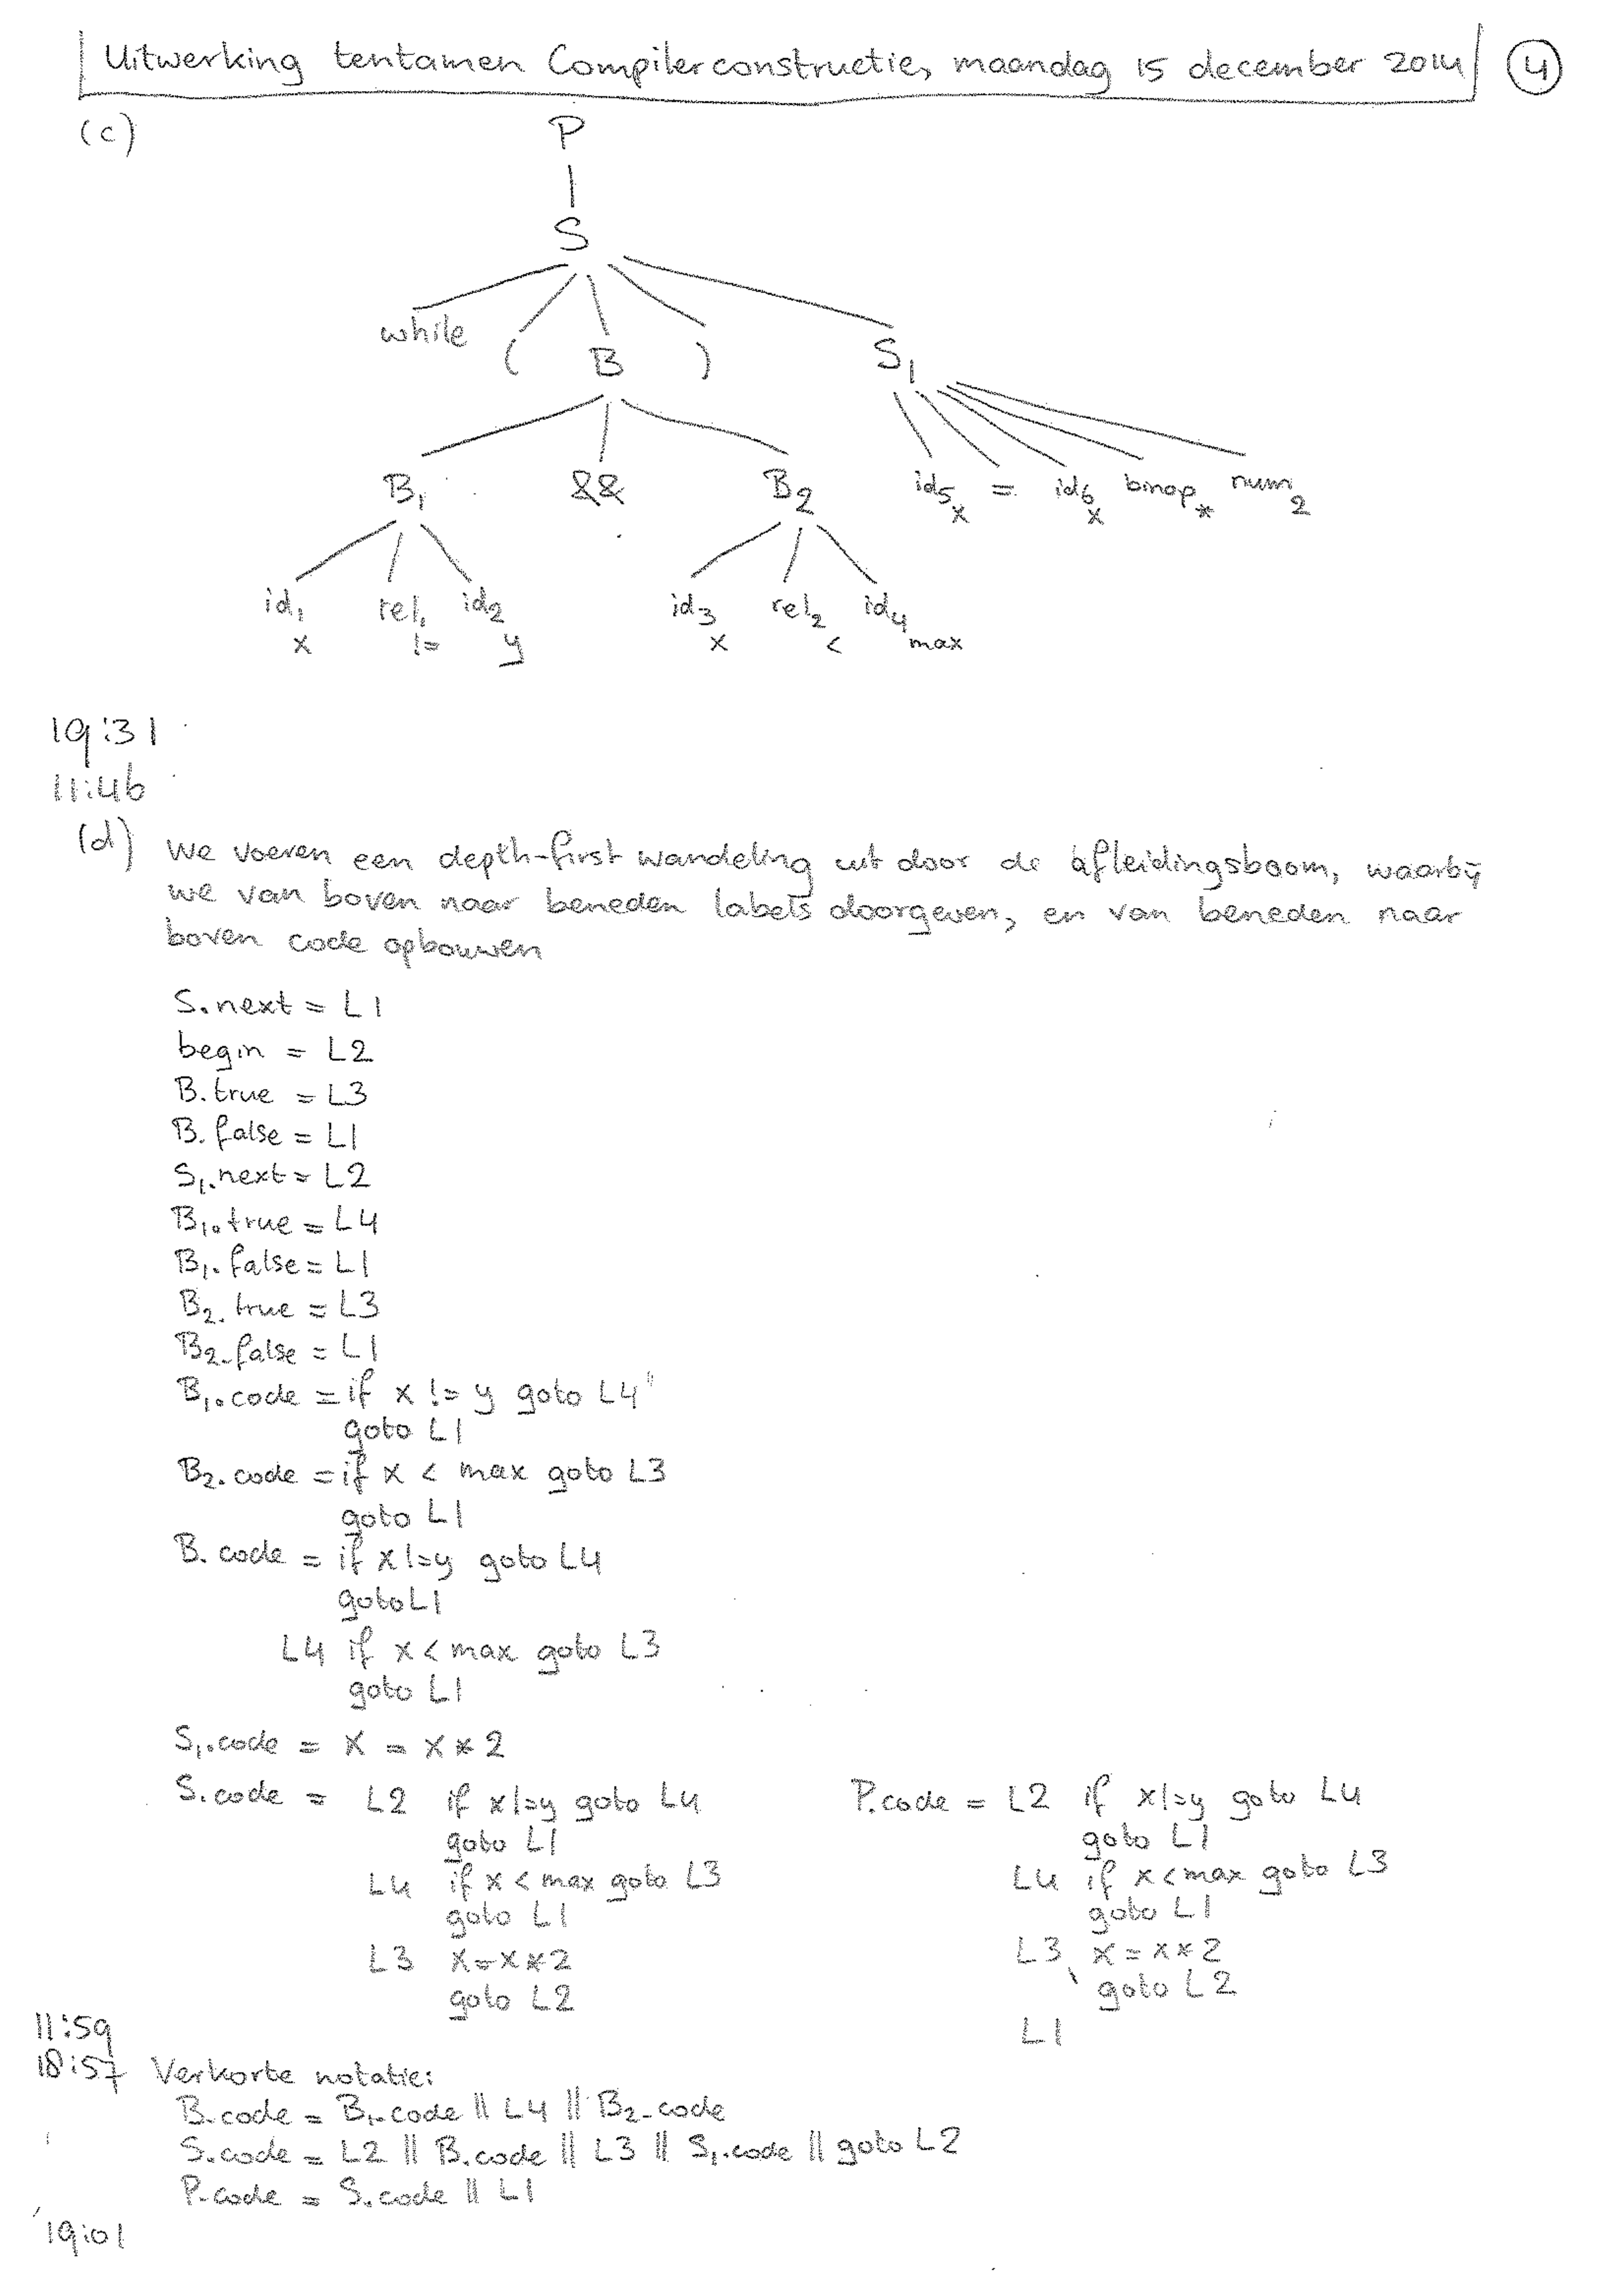 Uitwerking tentamen Compilerconstructie, maandag 15 december 2014 4
(c)
P
S
while ( B ) S1
B1 && B2 id5 x = id6 x binop * num 2
id1 x rel1 != id2 y id3 x rel2 < id4 max
19:31
11:46
(d) We voeren een depth-first wandeling uit door de afleidingsboom, waarbij
we van boven naar beneden labels doorgeven, en van beneden naar
boven code opbouwen
S.next = L1
begin = L2
B.true = L3
B.false = L1
S1.next = L2
B1.true = L4
B1.false = L1
B2.true = L3
B2.false = L1
B1.code = if x != y goto L4
goto L1
B2.code = if x < max goto L3
goto L1
B.code = if x != y goto L4
goto L1
L4 if x < max goto L3
goto L1
S1.code = x = x * 2
S.code = L2 if x != y goto L4
goto L1
L4 if x < max goto L3
goto L1
L3 x = x * 2
goto L2
P.code = L2 if x != y goto L4
goto L1
L4 if x < max goto L3
goto L1
L3 x = x * 2
goto L2
L1
11:59
18:57 Verkorte notatie:
B.code = B1.code || L4 || B2.code
S.code = L2 || B.code || L3 || S1.code || goto L2
P.code = S.code || L1
19:01